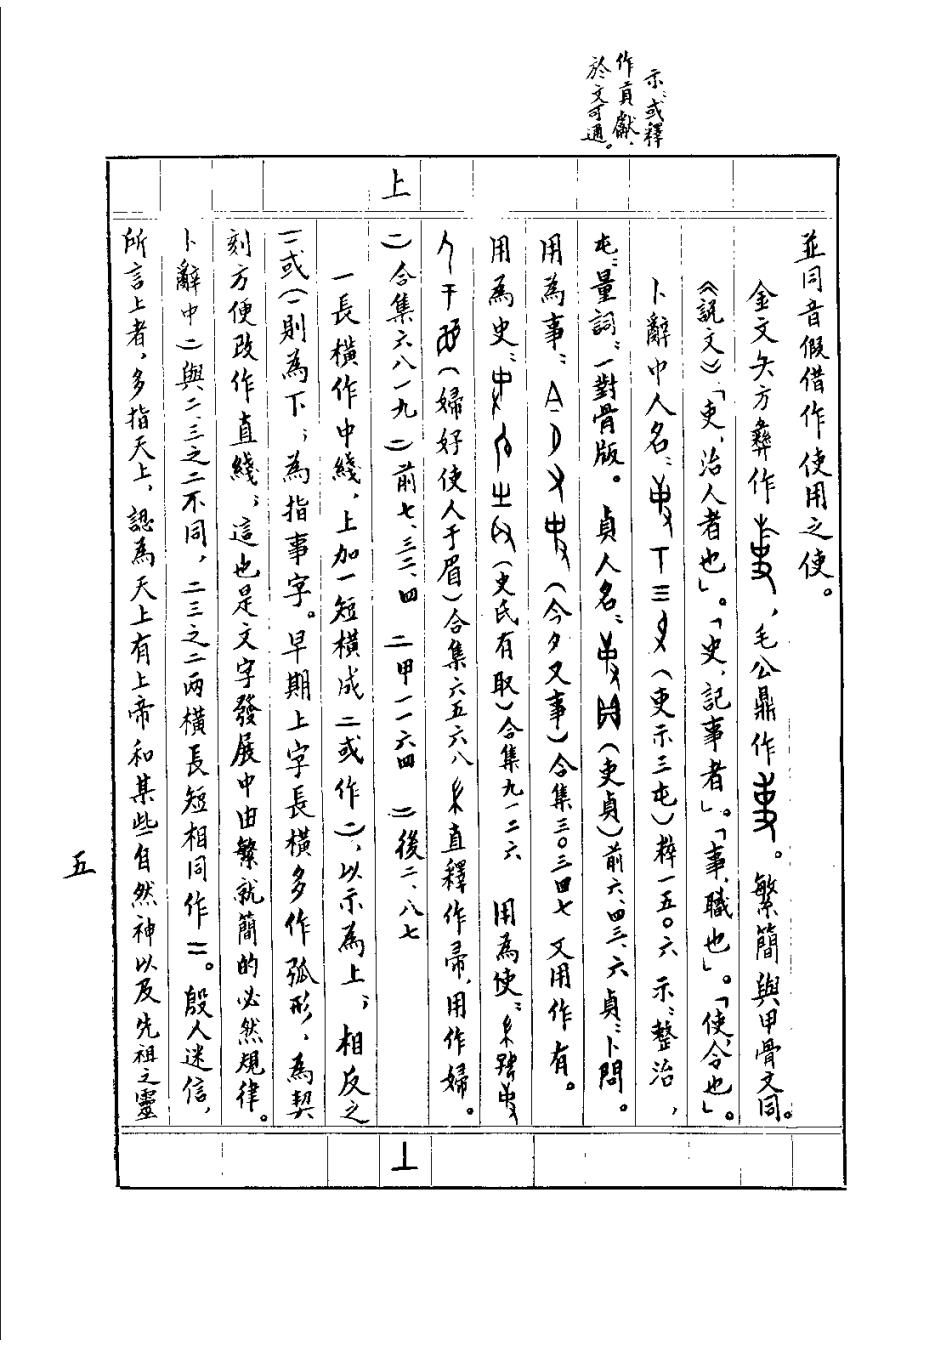 示：或釋
作貢獻，
於文可通。
並同音假借作使用之使。
金文矢方彝作，毛公鼎作。繁簡與甲骨文同。
《說文》「吏，治人者也」。「史，記事者」。「事，職也」。「使，令也」。
卜辭中人名：（吏示三屯）粹一五〇六 示：整治，
屯：量詞：一對骨版。 貞人名：（吏貞）前六、四三、六 貞：卜問。
用為事：（今夕又事）合集三〇三四七 又用作有。
用為史：（史氏有取）合集九一二六 用為使：
人于（婦好使人于眉）合集六五六八 直釋作帚，用作婦。
上
二 合集六八一九 二 前七、三二、四 二 甲一一六四 二 後二、八七
丄
一長橫作中綫，上加一短橫成二或作二，以示為上；相反之
一或則為下；為指事字。早期上字長橫多作弧形，為契
刻方便改作直綫；這也是文字發展中由繁就簡的必然規律。
卜辭中二與二、三之二不同，二三之二兩橫長短相同作二。殷人迷信，
所言上者，多指天上，認為天上有上帝和某些自然神以及先祖之靈
五